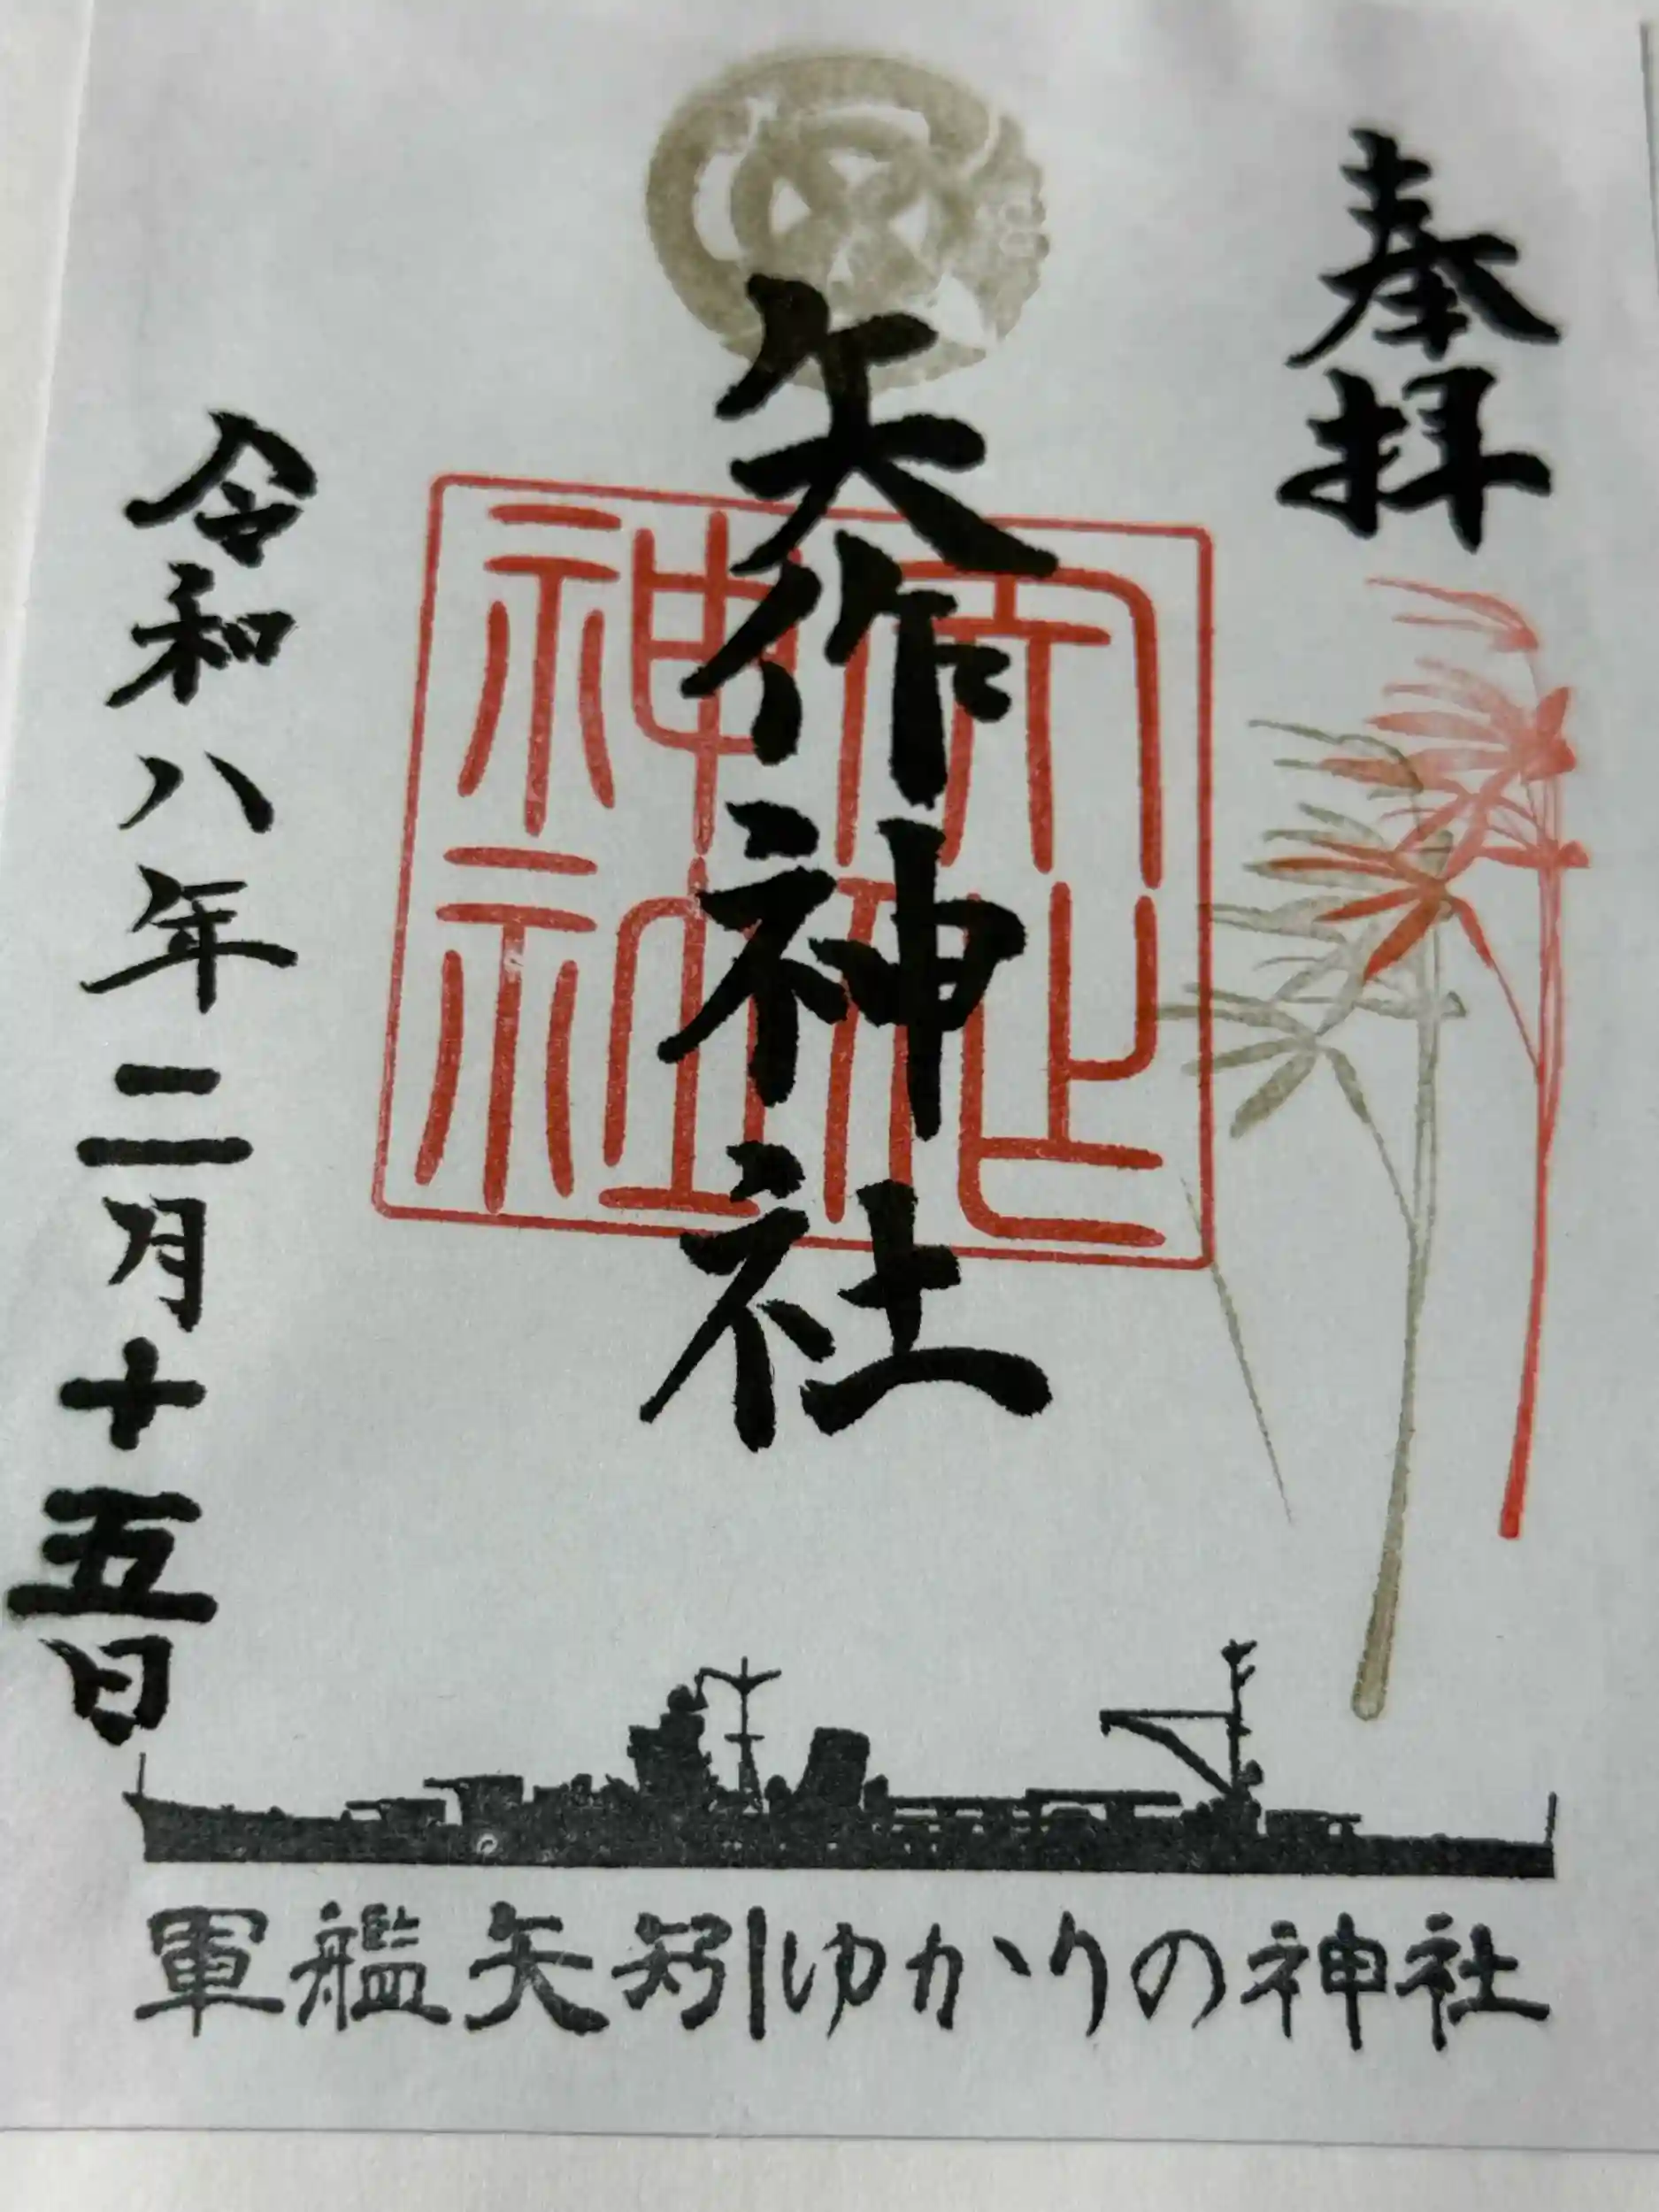 奉拝
矢作神社
矢作神社
令和八年二月十五日
軍艦矢矧ゆかりの神社